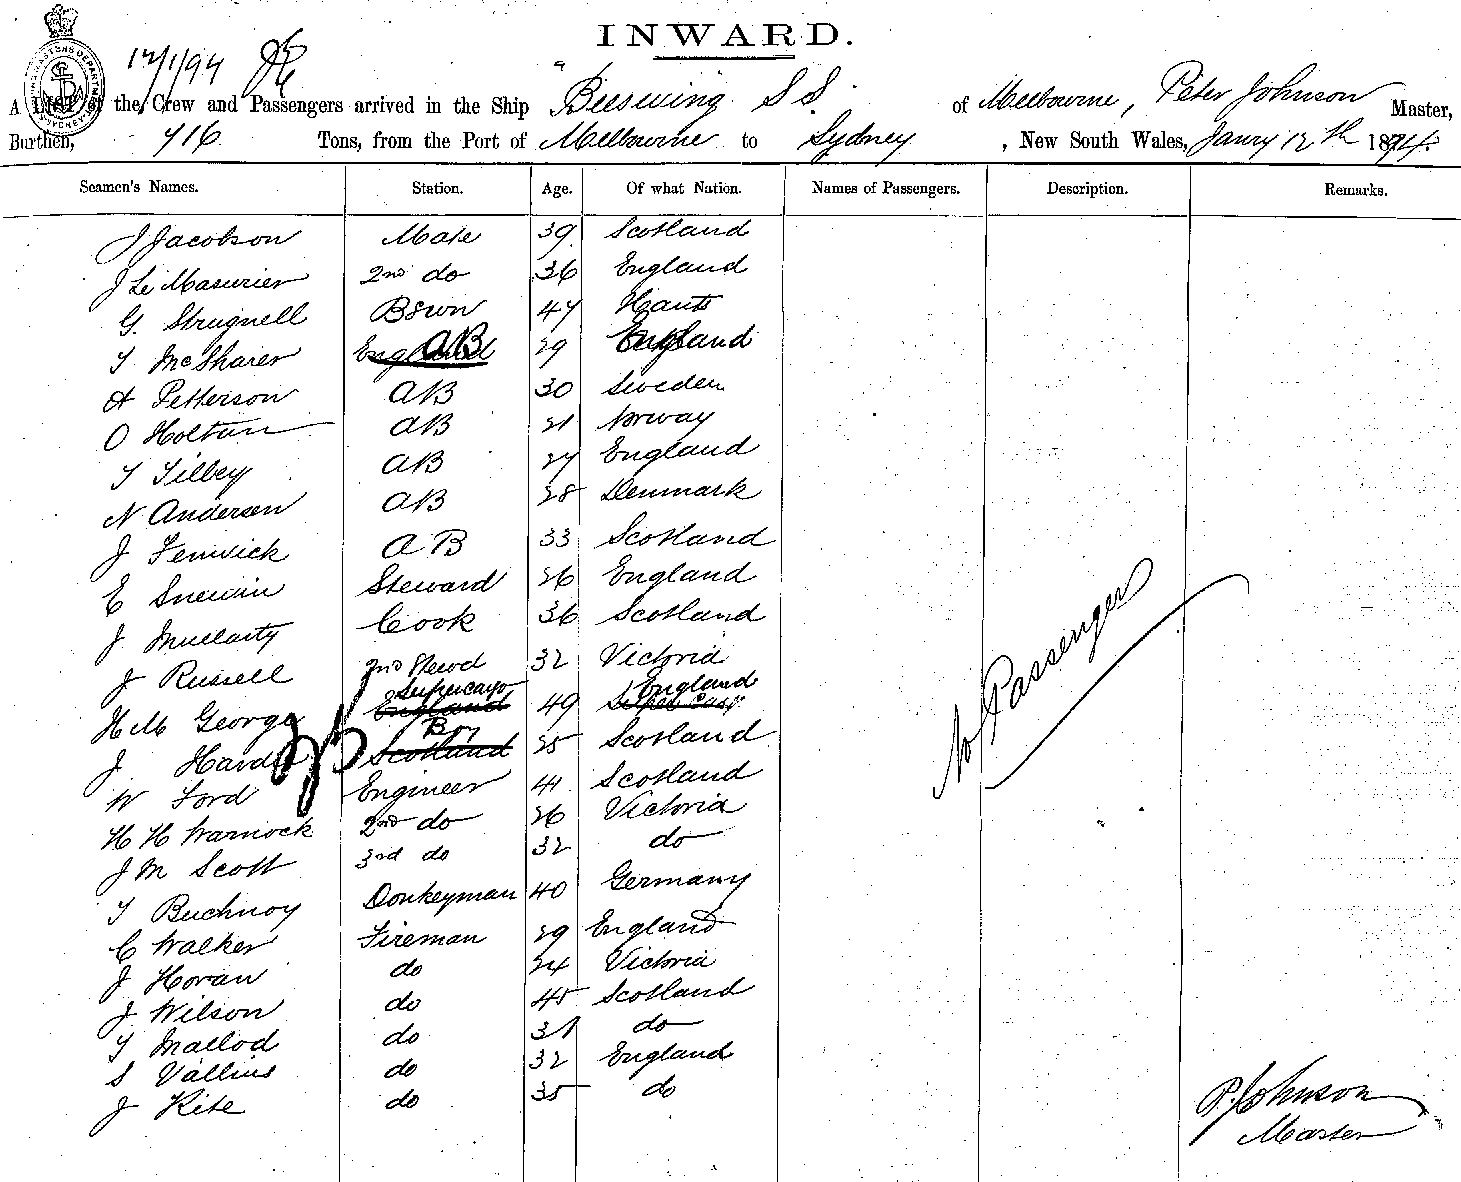 INWARD.
12/1/94
A LIST of the Crew and Passengers arrived in the Ship "Beeswing S S. of Melbourne, Peter Johnson Master,
Burthen, 716 Tons, from the Port of Melbourne to Sydney, New South Wales, Janry 12th 1894.
Seamen's Names. Station. Age. Of what Nation. Names of Passengers. Description. Remarks.
J Jacobson Mate 39 Scotland
J Le Masurier 2nd do 36 England
G. Strugnell BSwn 47 Hants
T McSharer England AB 29 England
A Petterson AB 30 Sweden
O Holtan AB 21 Norway
T Tilbey AB 27 England
N Andersen AB 28 Denmark
J Fenwick AB 33 Scotland
E Snewin Steward 26 England
J Mullarty Cook 36 Scotland
J Russell 2nd Stewd 32 Victoria
H M George England Supercargo 49 England
J Hardie Scotland Boy 25 Scotland
W Ford Engineer 41 Scotland
H H Warnock 2nd do 26 Victoria
J M Scott 3rd do 32 do
T Buchnoy Donkeyman 40 Germany
C Walker Fireman 29 England
J Horan do 24 Victoria
J Wilson do 45 Scotland
T Mallod do 31 do
S Vallins do 32 England
J Kite do 35 do
No Passengers
P. Johnson
Master